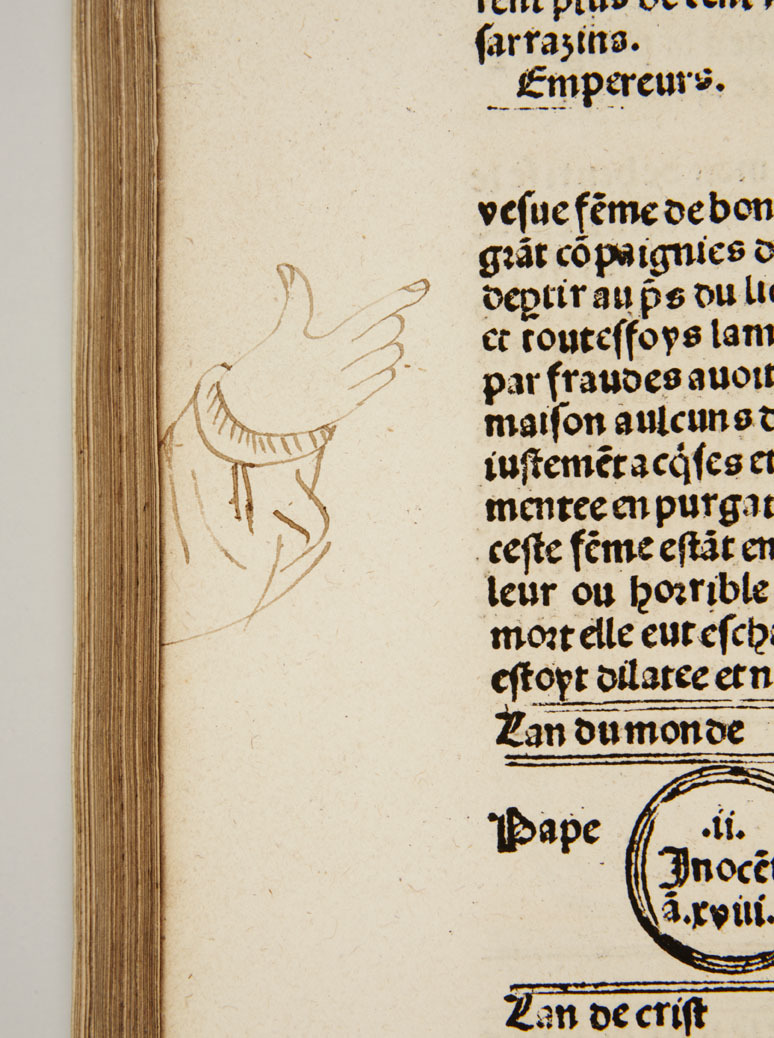 rent plus de cent
sarrazins.
Empereurs.
vesue fēme de bon
grāt cōpaignies d
deꝑtir au p̄s du lic
et toutesfoys lam
par fraudes auoit
maison aulcuns d
iustemēt acq̄ses et
mentee en purgat
ceste fēme estāt en
leur ou horrible
mort elle eut escha
estoyt dilatee et n
Lan du monde
Pape
.ii.
Inocēt
ā.xviii.
Lan de crist